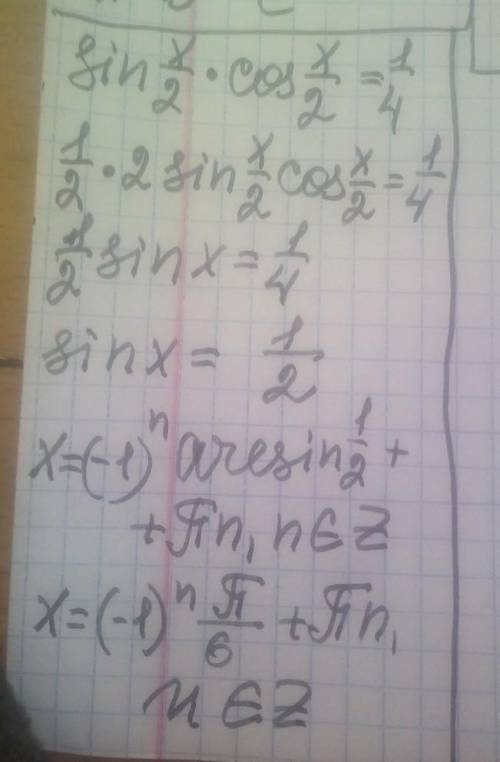 sin x/2 · cos x/2 = 1/4
1/2 · 2 sin x/2 cos x/2 = 1/4
1/2 sin x = 1/4
sin x = 1/2
x = (-1)ⁿ arcsin 1/2 +
+ πn, n ∈ Z
x = (-1)ⁿ π/6 + πn,
n ∈ Z